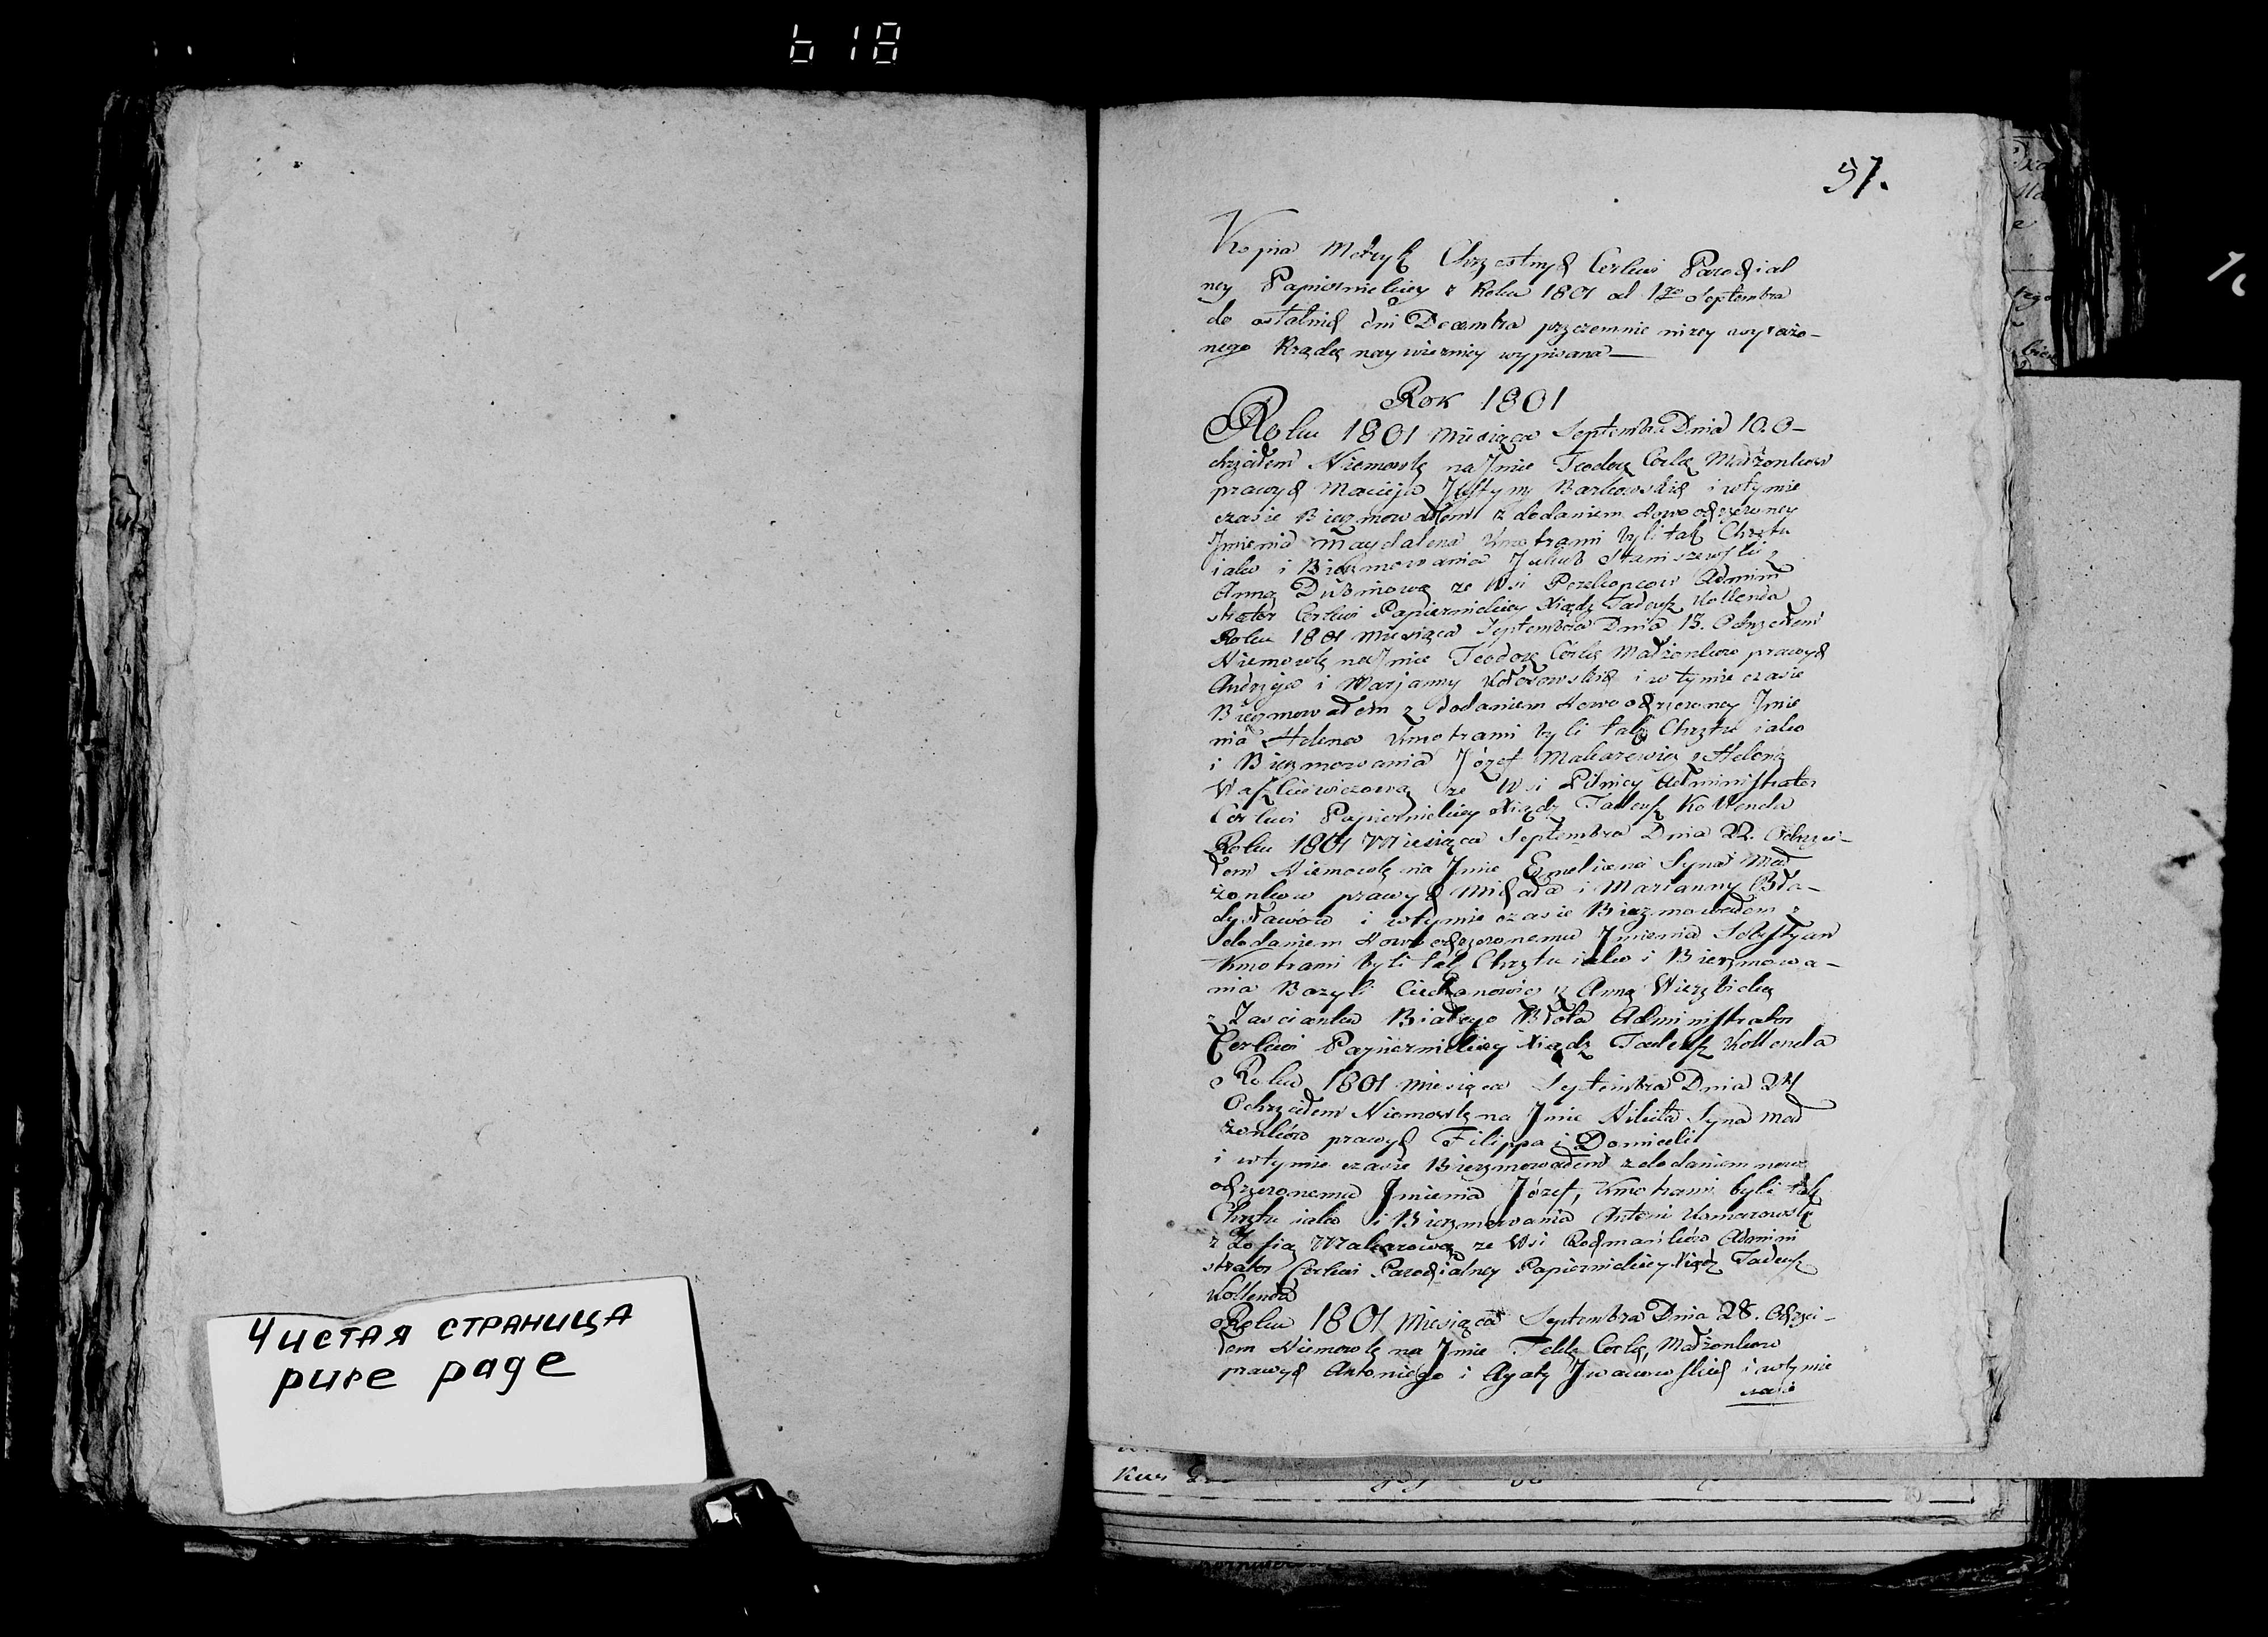 618
Чистая страница
pure page
57.
Kopia Metryk Chrzestnych Cerkwi Parochial
ney Papiernickiey z Roku 1801 od 1go Septembra
do ostatnich dni Decembra przezemnie niżey wyrażo-
nego Xiędza nay wierniey wypisana
Rok 1801
Roku 1801 Miesiąca Septembra Dnia 10. O-
chrzciłem Niemowlę na Jmie Teodorę Corkę Małżonkow
prawych Macieja Justyny Barkowskich i wtymie
czasie Bierzmowałem z dodaniem Nowoochrzconey
Jmienia Magdalena Kmotrami byli tak Chrztu
iako i Bierzmowania Jakub Staniszewski z
Anną Dubinową ze Wsi Admini
strator Cerkwi Papiernickiey Xiądz Tadeusz Kollenda
Roku 1801 Miesiąca Septembra Dnia 13. Ochrzciłem
Niemowlę na Jmie Teodorę Córkę Małżonkow prawych
Andrzeja i Marjanny i w tymie czasie
Bierzmowałem z dodaniem Nowoochrzconey Jmie
nia Helena Kmotrami byli tak Chrztu iako
i Bierzmowania Józef Makarewicz z Heleną
Waszkiewiczową ze Wsi Pilnicy Administrator
Cerkwi Papiernickiey Xiądz Tadeusz Kollenda
Roku 1801 Miesiąca Septembra Dnia 22. Ochrzci-
łem Niemowlę na Jmie Emeliana Syna Mał
żonkow prawych Michała i Marianny Bła-
dysławow i wtymie czasie Bierzmowałem z
dodaniem Nowo ochrzconemu Jmienia Sebestyan
Kmotrami byli tak Chrztu iako i Bierzmowa-
nia Bazyli Ciechanowicz z Anną Wierzbicką
z Zascianku Białego Błota Administrator
Cerkwi Papiernickiey Xiądz Tadeusz Kollenda
Roku 1801 Miesiąca Septembra Dnia 24
Ochrzciłem Niemowlę na Jmie Nikita Syna Mał
żonków prawych Filippa i Domiceli
i wtymie czasie Bierzmowałem z dodaniem nowo
ochrzconemu Jmienia Józef, Kmotrami byli tak
Chrztu iako i Bierzmowania Antoni Komarowski
z Zofią Makarową ze Wsi Rochmańków Admini
strator Cerkwi Parochialney Papiernickiey Xiądz Tadeusz
Kollenda
Roku 1801 Miesiąca Septembra Dnia 28. Ochrzci-
łem Niemowlę na Jmie Teklę Corkę, Małżonkow
prawych Antoniego i Agaty Jwanowskich i wtymie
czasie